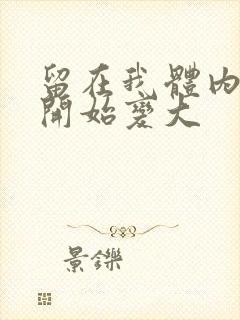 留在我體內
開始變大
景鑠